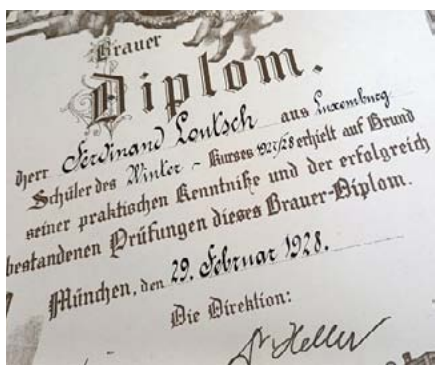 Brauer
Diplom.
Herr Ferdinand Loutsch aus Luxemburg
Schüler des Winter - Kurses 1927/28 erhielt auf Grund
seiner praktischen Kenntniße und der erfolgreich
bestandenen Prüfungen dieses Brauer-Diplom.
München, den 29. Februar 1928.
Die Direktion:
Dr Heller